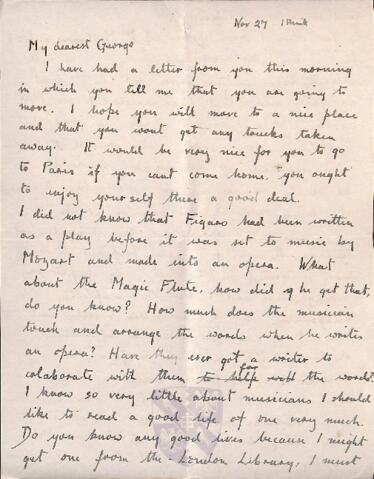 Nov 27 I think
My dearest George
I have had a letter from you this morning
in which you tell me that you are going to
move. I hope you will move to a nice place
and that you wont get any trucks taken
away. It would be very nice for you to go
to Paris if you cant come home. you ought
to enjoy yourself there a good deal.
I did not know that Figaro had been written
as a play before it was set to music by
Mozart and made into an opera. What
about the Magic Flute, how did he get that,
do you know? How much does the musician
touch and arrange the words when he writes
an opera? Have they ever got a writer to
colaborate with them to help with for the words?
I know so very little about musicians I should
like to read a good life of one very much.
Do you know any good lives because I might
get one from the London Library, I must